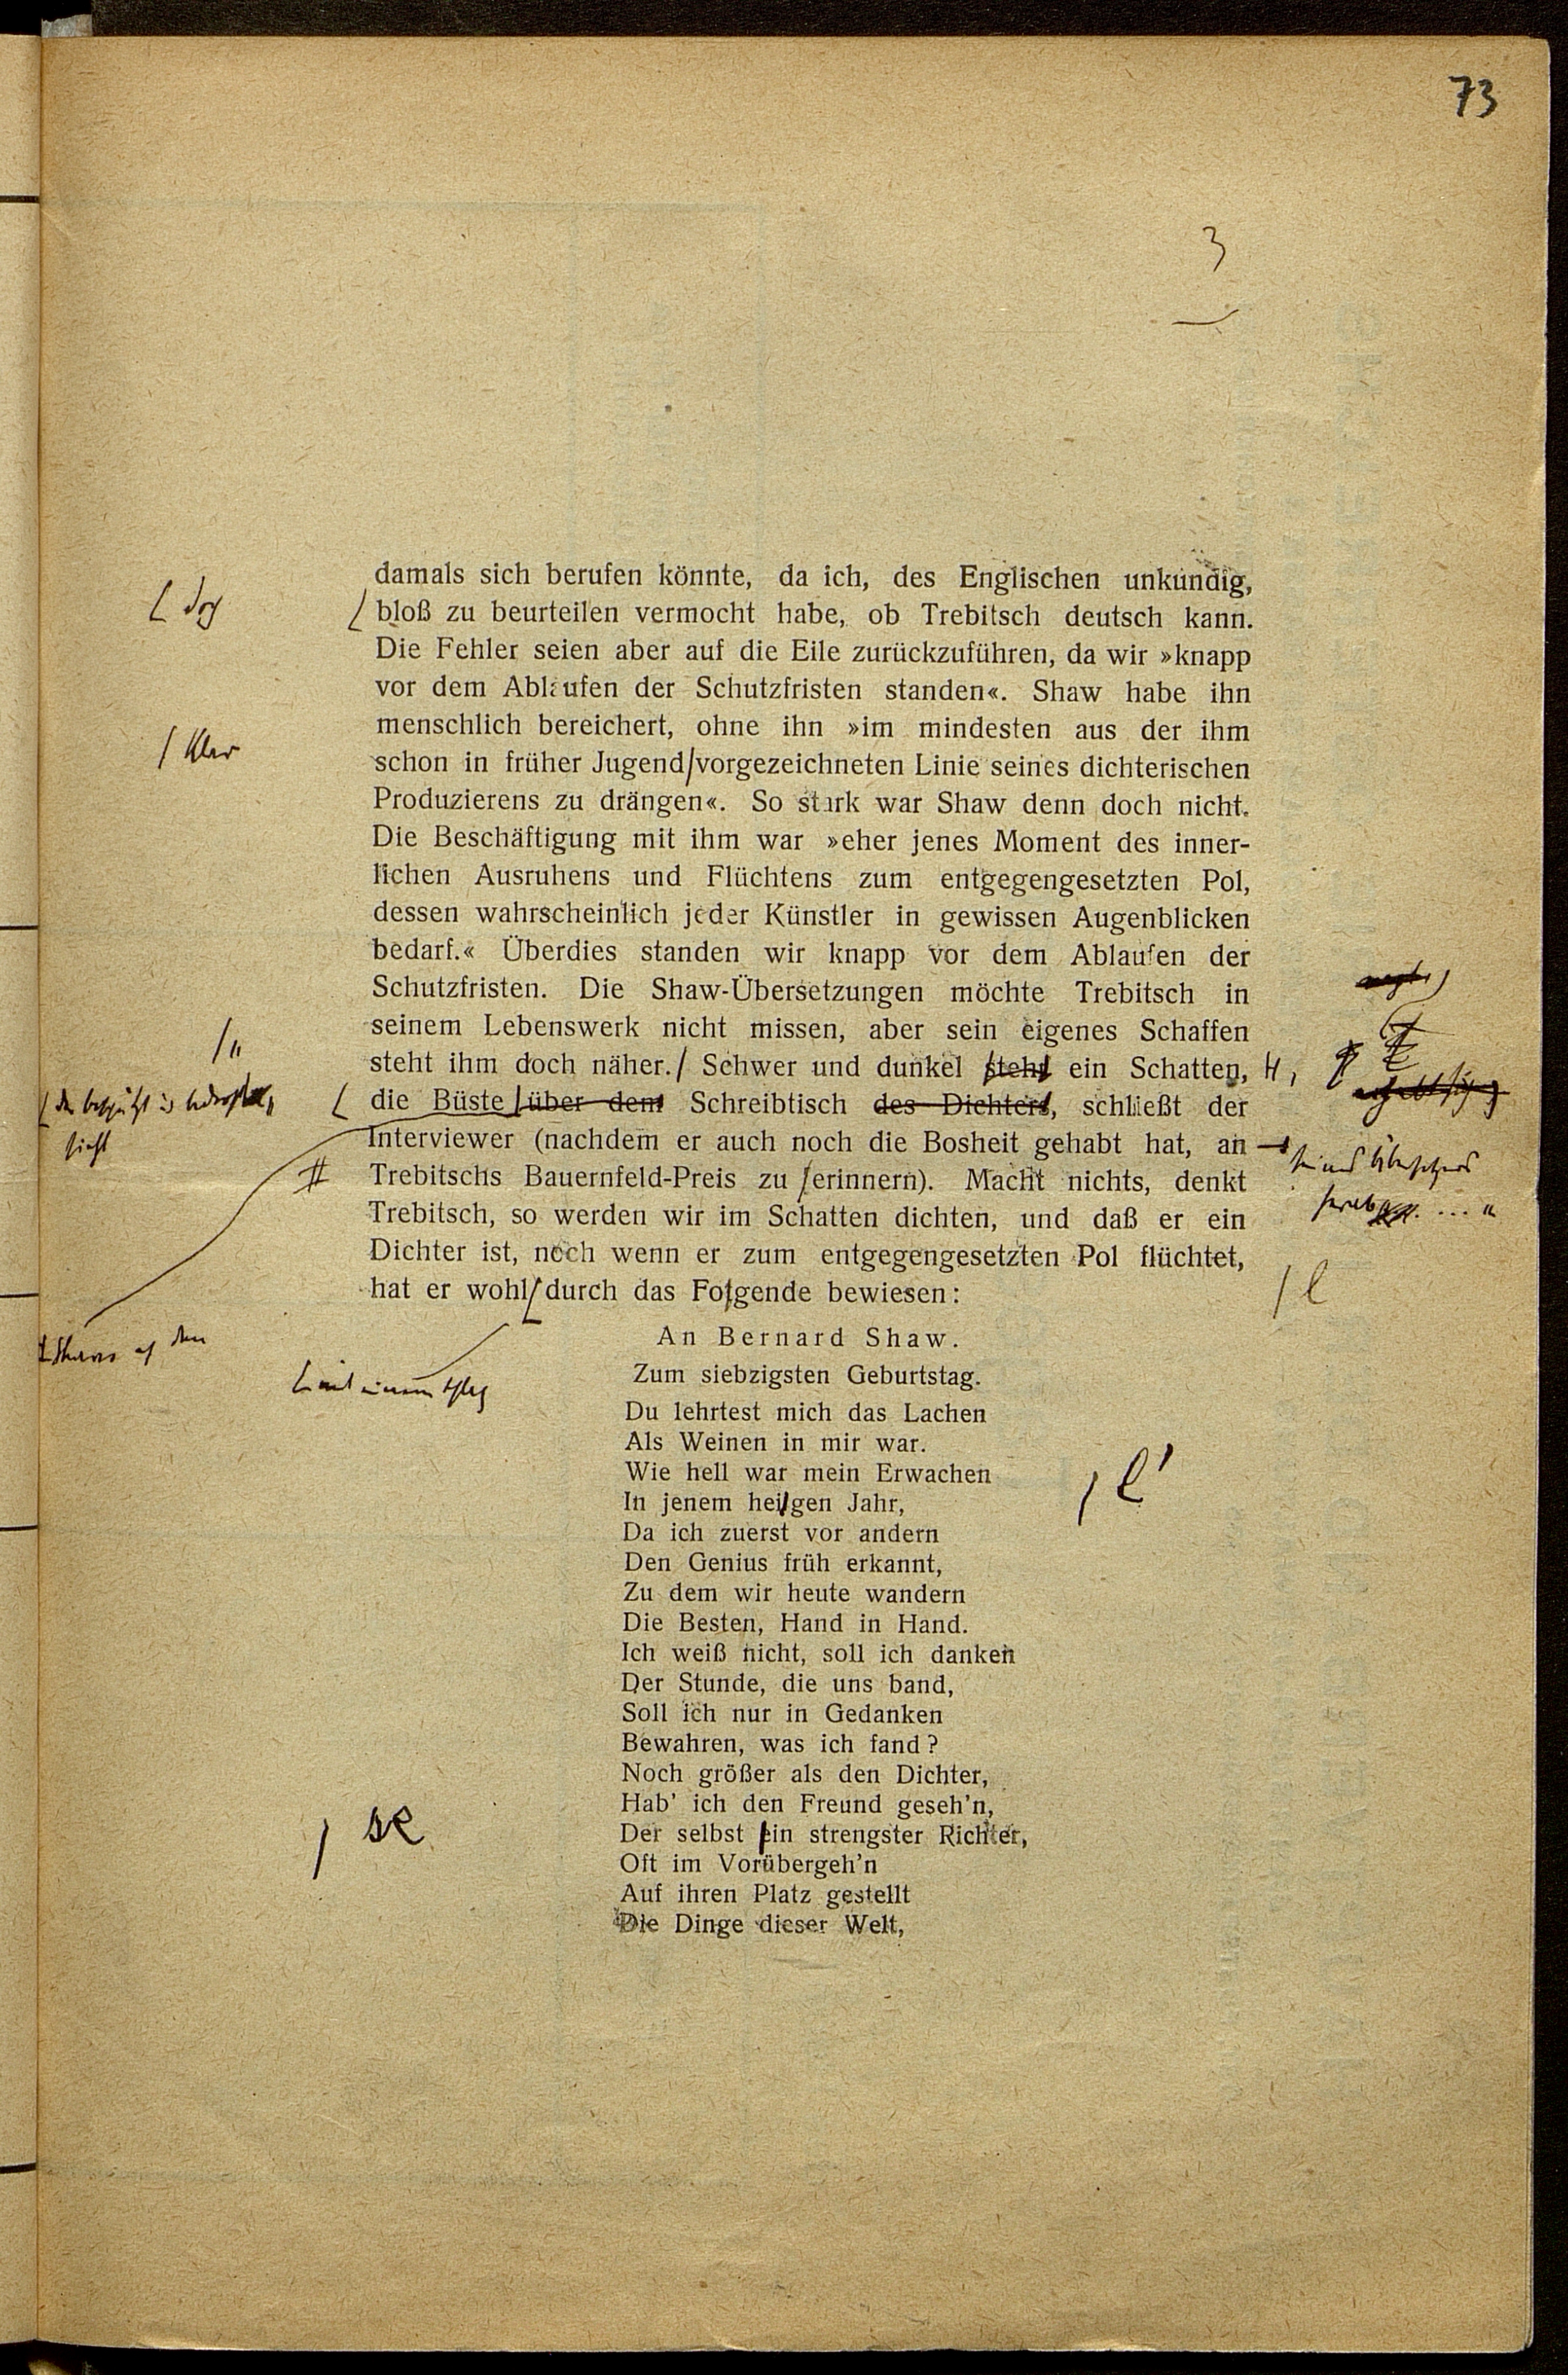 73
3
damals sich berufen könnte, da ich, des Englischen unkundig,
bloß zu beurteilen vermocht habe, ob Trebitsch deutsch kann.
Die Fehler seien aber auf die Eile zurückzuführen, da wir »knapp
vor dem Ablaufen der Schutzfristen standen«. Shaw habe ihn
menschlich bereichert, ohne ihn »im mindesten aus der ihm
klar
schon in früher Jugend vorgezeichneten Linie seines dichterischen
Produzierens zu drängen«. So stark war Shaw denn doch nicht.
Die Beschäftigung mit ihm war »eher jenes Moment des inner-
lichen Ausruhens und Flüchtens zum entgegengesetzten Pol,
dessen wahrscheinlich jeder Künstler in gewissen Augenblicken
bedarf.« Überdies standen wir knapp vor dem Ablaufen der
Schutzfristen. Die Shaw-Übersetzungen möchte Trebitsch in
seinem Lebenswerk nicht missen, aber sein eigenes Schaffen
steht ihm doch näher. Schwer und dunkel steht ein Schatten,
die Büste über dem Schreibtisch des Dichters, schließt der
Interviewer (nachdem er auch noch die Bosheit gehabt hat, an
Trebitschs Bauernfeld-Preis zu erinnern). Macht nichts, denkt
Trebitsch, so werden wir im Schatten dichten, und daß er ein
Dichter ist, noch wenn er zum entgegengesetzten Pol flüchtet,
hat er wohl durch das Folgende bewiesen:
l
An Bernard Shaw.
Zum siebzigsten Geburtstag.
Du lehrtest mich das Lachen
Als Weinen in mir war.
Wie hell war mein Erwachen
In jenem heilgen Jahr,
l'
Da ich zuerst vor andern
Den Genius früh erkannt,
Zu dem wir heute wandern
Die Besten, Hand in Hand.
Ich weiß nicht, soll ich danken
Der Stunde, die uns band,
Soll ich nur in Gedanken
Bewahren, was ich fand?
Noch größer als den Dichter,
Hab' ich den Freund geseh'n,
Der selbst ein strengster Richter,
Oft im Vorübergeh'n
Auf ihren Platz gestellt
Die Dinge dieser Welt,